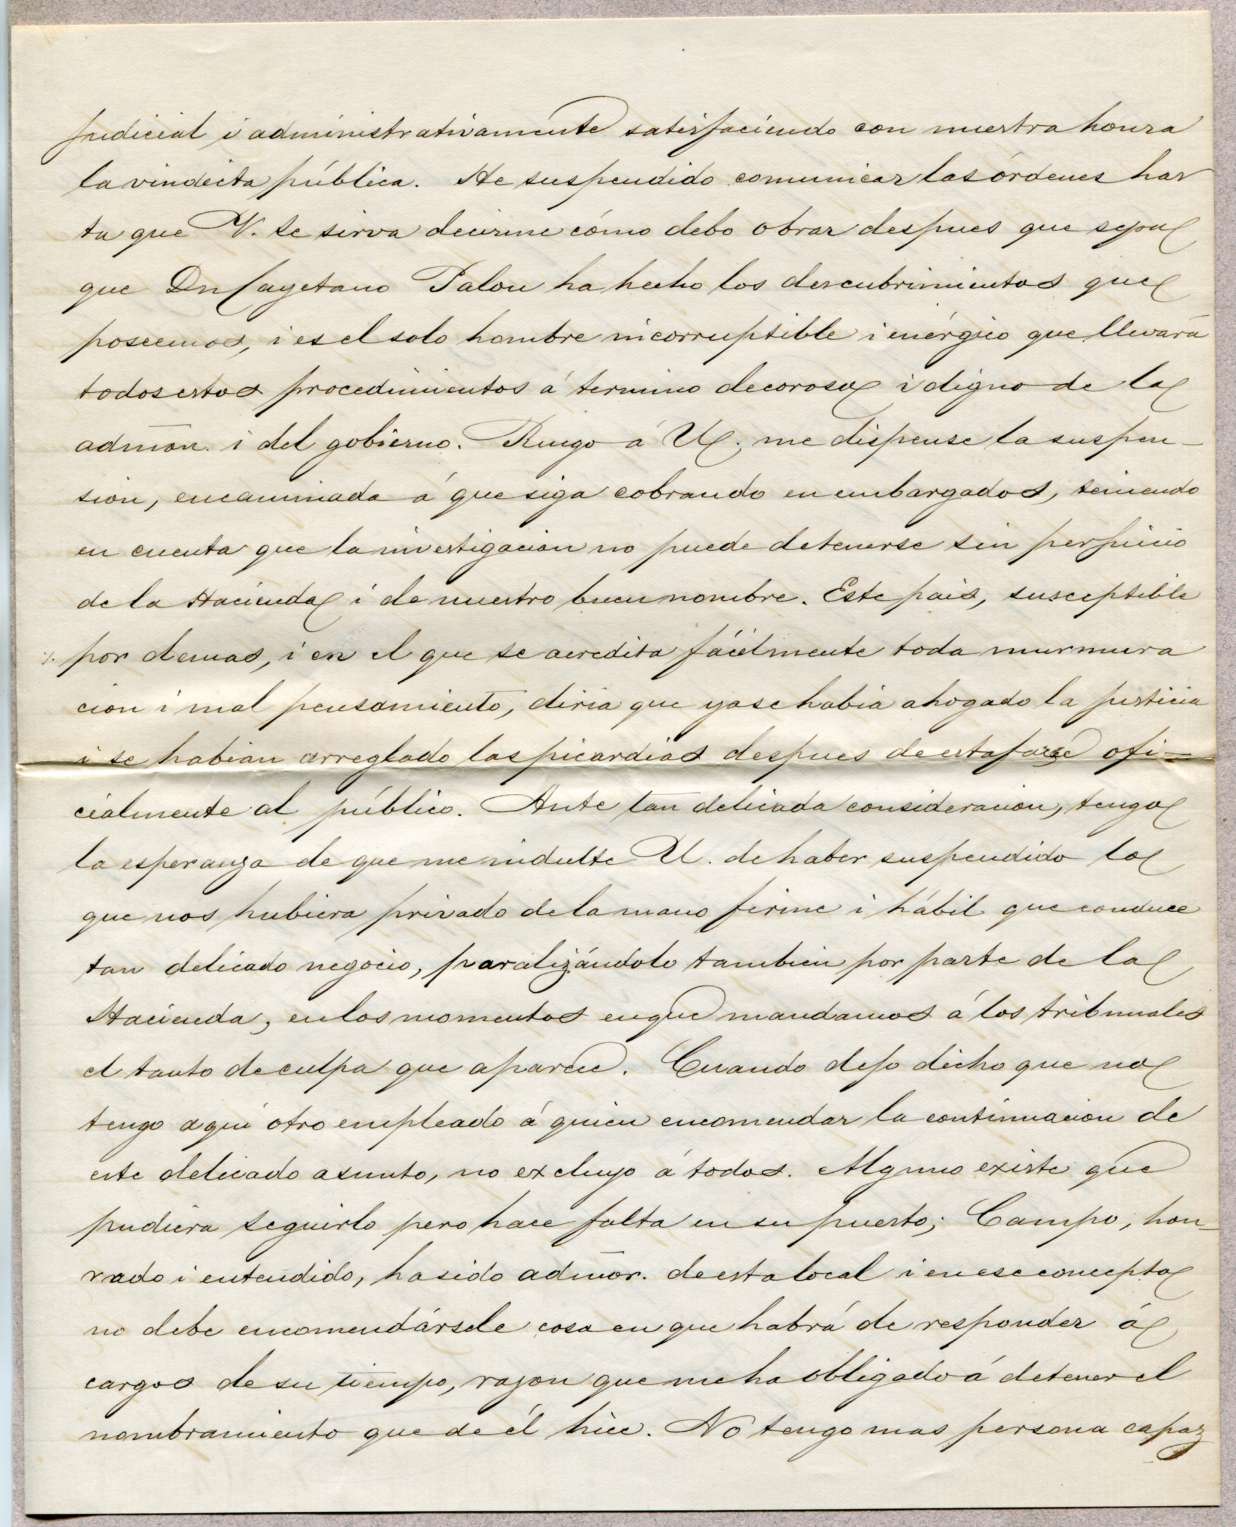 judicial i administrativamente satisfaciendo con nuestra honra
la vindicta pública. He suspendido comunicar las órdenes has
ta que V. se sirva decirme cómo debo obrar despues que sepa
que Dn Cayetano Palou ha hecho los descubrimientos que
poseemos, i es el solo hombre incorruptible i enérgico que llevará
todos estos procedimientos á termino decoroso i digno de la
admon. i del gobierno. Ruego á U. me dispense la suspen-
sion, encaminada á que siga cobrando en embargados, teniendo
en cuenta que la investigacion no puede detenerse sin perjuicio
de la Hacienda i de nuestro buen nombre. Este pais, susceptible
por demas, i en el que se acredita fácilmente toda murmura
cion i mal pensamiento, diria que ya se habia ahogado la justicia
i se habian arreglado las picardias despues de estafarse ofi-
cialmente al público. Ante tan delicada consideracion, tengo
la esperanza de que me indulte U. de haber suspendido lo
que nos hubiera privado de la mano firme i hábil que conduce
tan delicado negocio, paralizándolo tambien por parte de la
Hacienda, en los momentos en que mandamos á los tribunales
el tanto de culpa que aparece. Cuando dejo dicho que no
tengo aquí otro empleado á quien encomendar la continuacion de
este delicado asunto, no excluyo á todos. Alguno existe que
pudiera seguirlo pero hace falta en su puesto; Campo, hon-
rado i entendido, ha sido admor. de esta local i en ese concepto
no debe encomendársele cosa en que habrá de responder á
cargos de su tiempo, razon que me ha obligado á detener el
nombramiento que de él hice. No tengo mas persona capaz